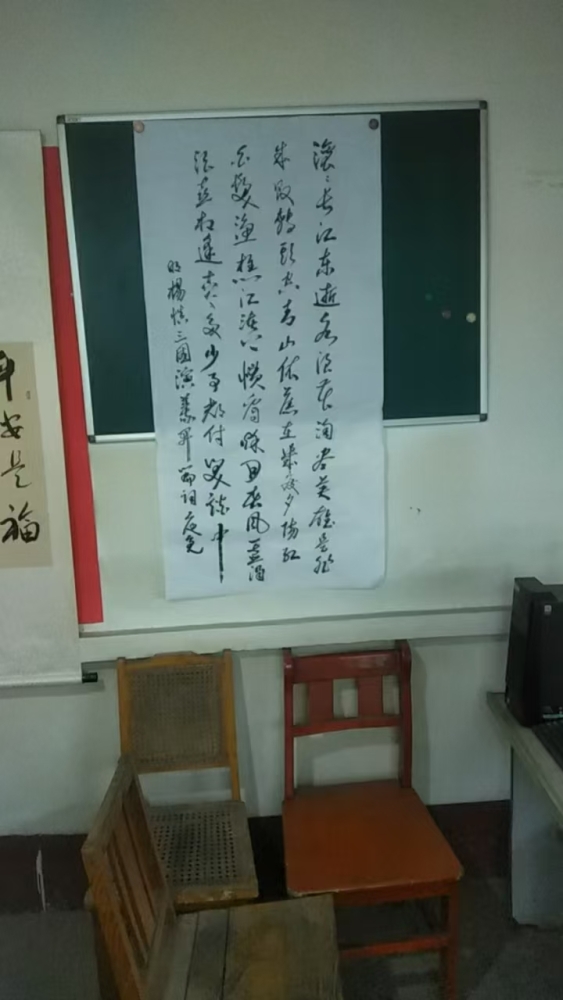 滚〻长江东逝水浪花淘尽英雄是非
成败转头空青山依舊在幾度夕阳红
白髮渔樵江渚上惯看秋月春风一壶浊
酒喜相逢古今多少事都付笑谈中
明楊慎三國演義开篇词
平安是福